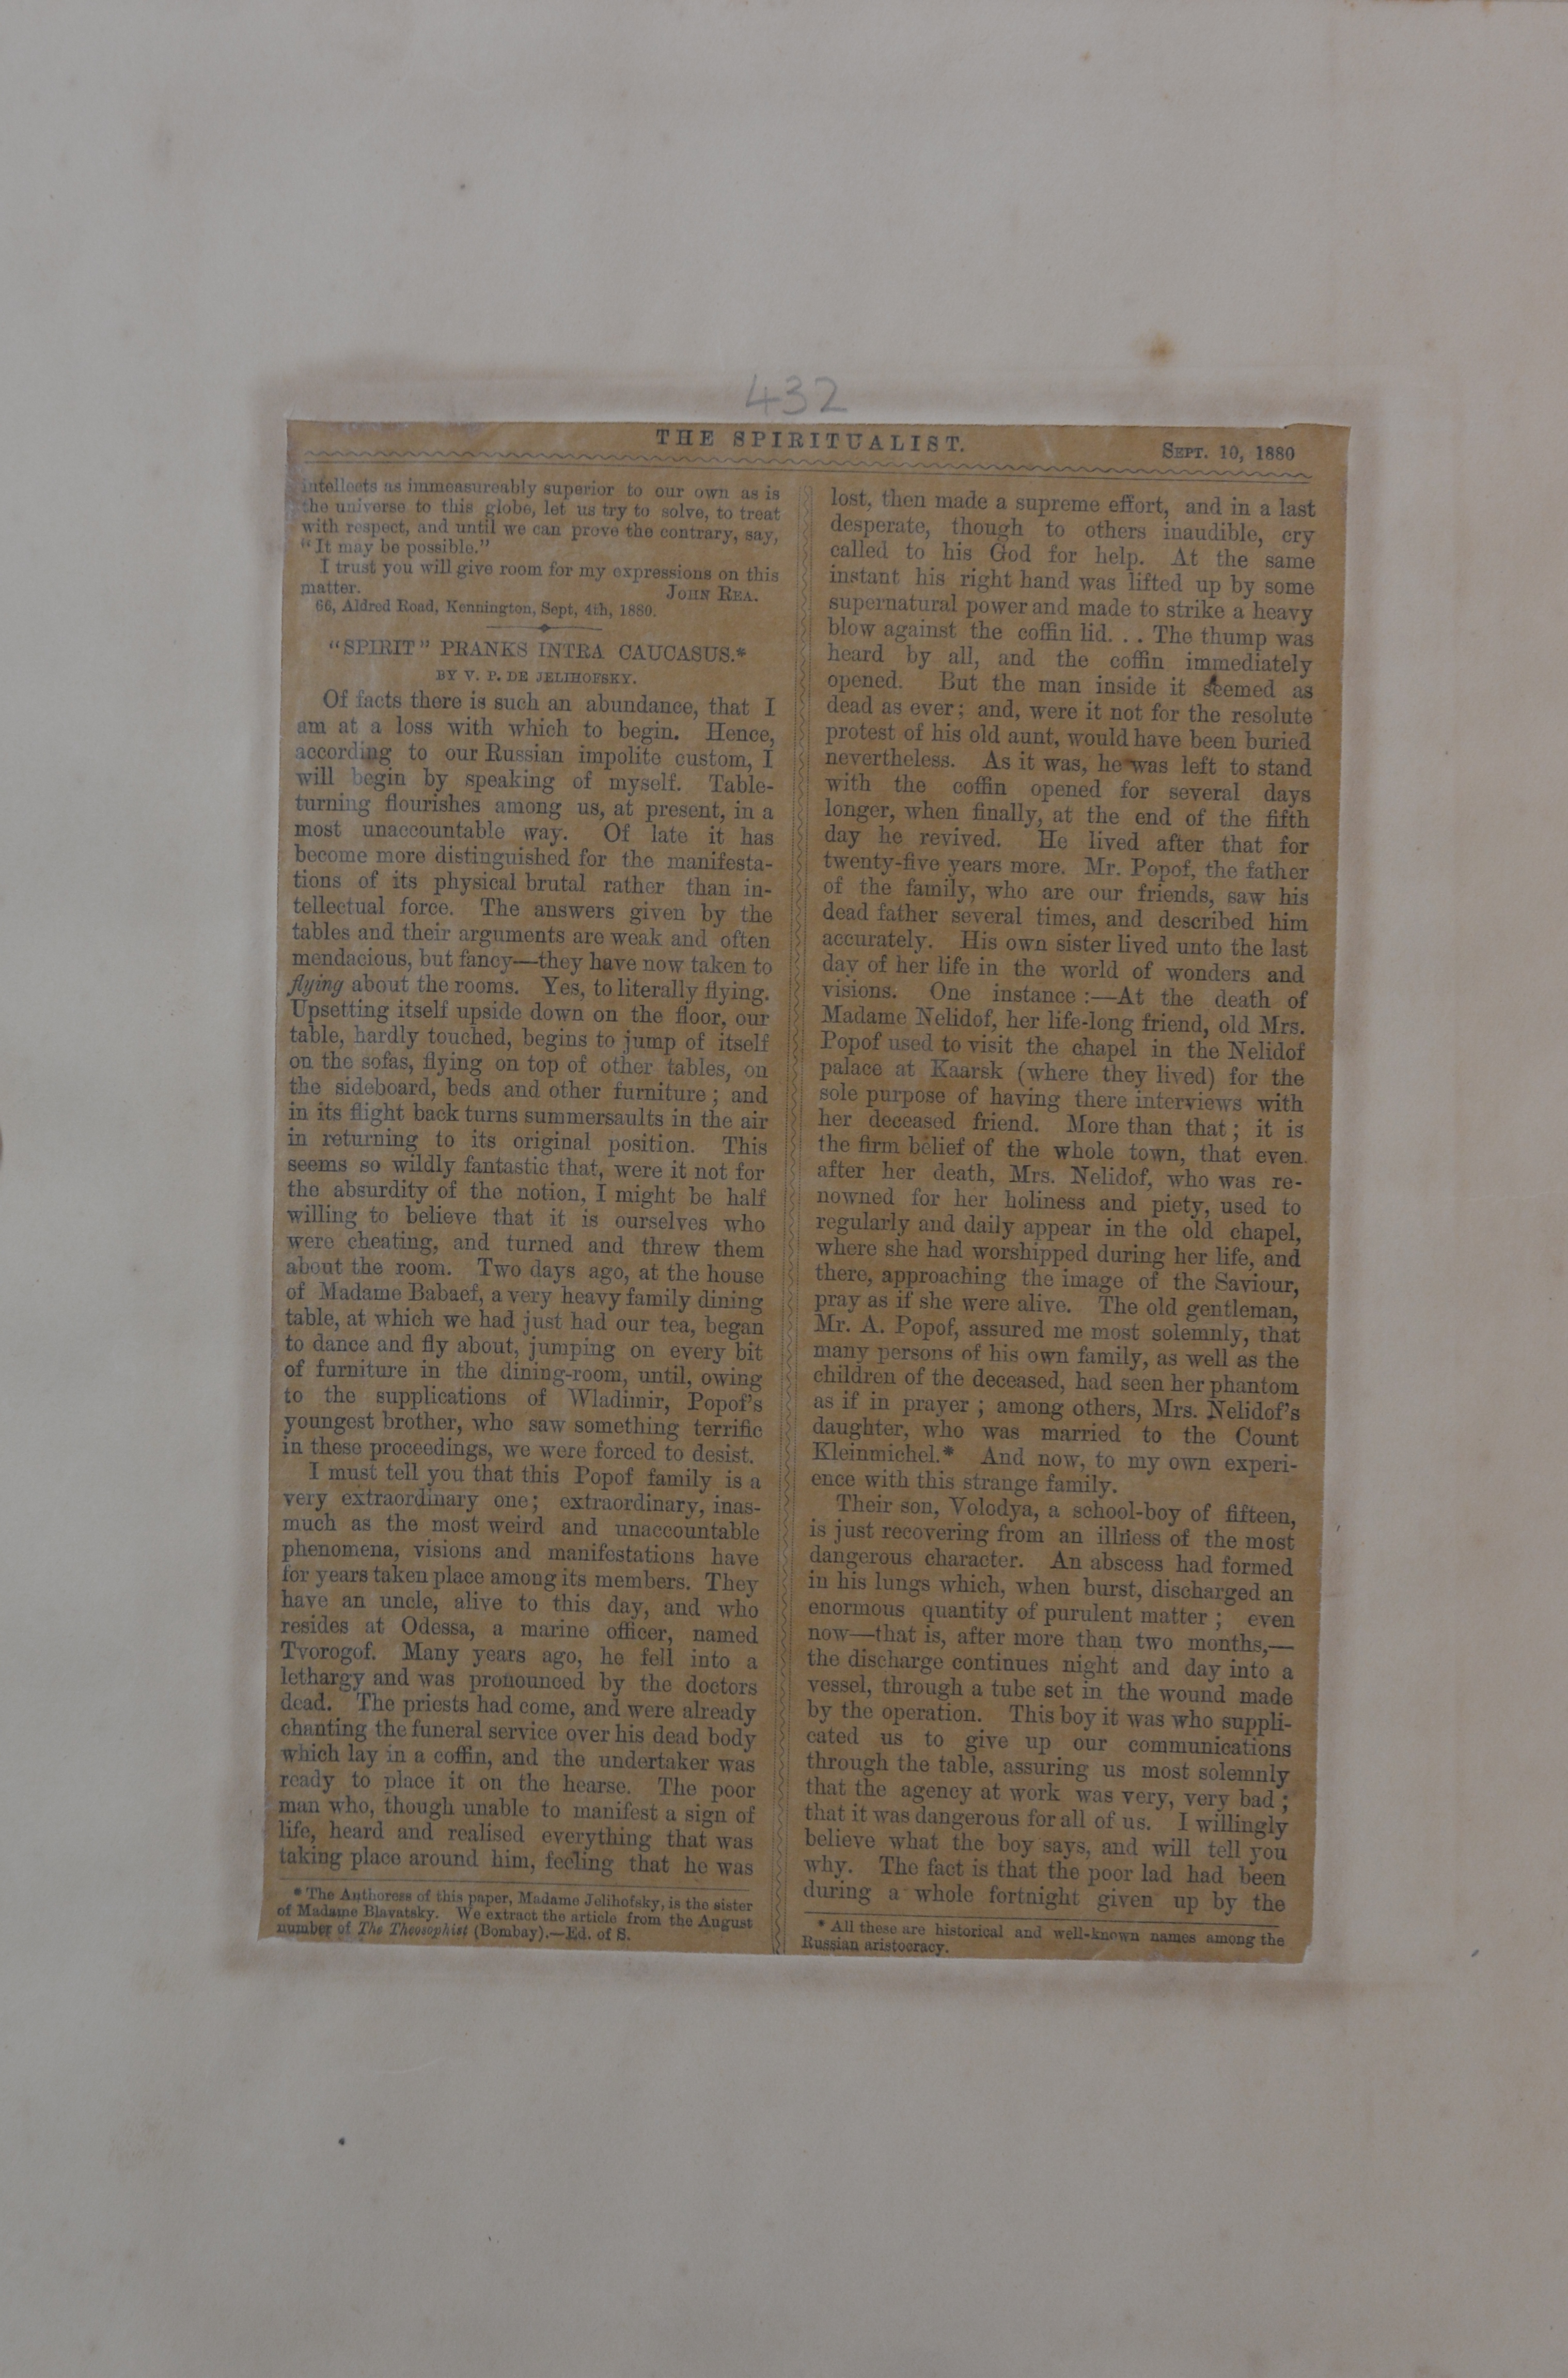 432
THE SPIRITUALIST.
SEPT. 10, 1880
intellects as immeasureably superior to our own as is
the universe to this globe, let us try to solve, to treat
with respect, and until we can prove the contrary, say,
“It may be possible.”
I trust you will give room for my expressions on this
matter. JOHN REA.
66, Aldred Road, Kennington, Sept, 4th, 1880.
“SPIRIT” PRANKS INTRA CAUCASUS.*
BY V. P. DE JELIHOFSKY.
Of facts there is such an abundance, that I
am at a loss with which to begin. Hence,
according to our Russian impolite custom, I
will begin by speaking of myself. Table-
turning flourishes among us, at present, in a
most unaccountable way. Of late it has
become more distinguished for the manifesta-
tions of its physical brutal rather than in-
tellectual force. The answers given by the
tables and their arguments are weak and often
mendacious, but fancy—they have now taken to
flying about the rooms. Yes, to literally flying.
Upsetting itself upside down on the floor, our
table, hardly touched, begins to jump of itself
on the sofas, flying on top of other tables, on
the sideboard, beds and other furniture; and
in its flight back turns summersaults in the air
in returning to its original position. This
seems so wildly fantastic that, were it not for
the absurdity of the notion, I might be half
willing to believe that it is ourselves who
were cheating, and turned and threw them
about the room. Two days ago, at the house
of Madame Babaef, a very heavy family dining
table, at which we had just had our tea, began
to dance and fly about, jumping on every bit
of furniture in the dining-room, until, owing
to the supplications of Wladimir, Popof's
youngest brother, who saw something terrific
in these proceedings, we were forced to desist.
I must tell you that this Popof family is a
very extraordinary one; extraordinary, inas-
much as the most weird and unaccountable
phenomena, visions and manifestations have
for years taken place among its members. They
have an uncle, alive to this day, and who
resides at Odessa, a marine officer, named
Tvorogof. Many years ago, he fell into a
lethargy and was pronounced by the doctors
dead. The priests had come, and were already
chanting the funeral service over his dead body
which lay in a coffin, and the undertaker was
ready to place it on the hearse. The poor
man who, though unable to manifest a sign of
life, heard and realised everything that was
taking place around him, feeling that he was
* The Authoress of this paper, Madame Jelihofsky, is the sister
of Madame Blavatsky. We extract the article from the August
number of The Theosophist (Bombay).—Ed. of S.
lost, then made a supreme effort, and in a last
desperate, though to others inaudible, cry
called to his God for help. At the same
instant his right hand was lifted up by some
supernatural power and made to strike a heavy
blow against the coffin lid. . . The thump was
heard by all, and the coffin immediately
opened. But the man inside it seemed as
dead as ever; and, were it not for the resolute
protest of his old aunt, would have been buried
nevertheless. As it was, he was left to stand
with the coffin opened for several days
longer, when finally, at the end of the fifth
day he revived. He lived after that for
twenty-five years more. Mr. Popof, the father
of the family, who are our friends, saw his
dead father several times, and described him
accurately. His own sister lived unto the last
day of her life in the world of wonders and
visions. One instance :—At the death of
Madame Nelidof, her life-long friend, old Mrs.
Popof used to visit the chapel in the Nelidof
palace at Kaarsk (where they lived) for the
sole purpose of having there interviews with
her deceased friend. More than that; it is
the firm belief of the whole town, that even
after her death, Mrs. Nelidof, who was re-
nowned for her holiness and piety, used to
regularly and daily appear in the old chapel,
where she had worshipped during her life, and
there, approaching the image of the Saviour,
pray as if she were alive. The old gentleman,
Mr. A. Popof, assured me most solemnly, that
many persons of his own family, as well as the
children of the deceased, had seen her phantom
as if in prayer ; among others, Mrs. Nelidof's
daughter, who was married to the Count
Kleinmichel.* And now, to my own experi-
ence with this strange family.
Their son, Volodya, a school-boy of fifteen,
is just recovering from an illness of the most
dangerous character. An abscess had formed
in his lungs which, when burst, discharged an
enormous quantity of purulent matter ; even
now—that is, after more than two months,—
the discharge continues night and day into a
vessel, through a tube set in the wound made
by the operation. This boy it was who suppli-
cated us to give up our communications
through the table, assuring us most solemnly
that the agency at work was very, very bad ;
that it was dangerous for all of us. I willingly
believe what the boy says, and will tell you
why. The fact is that the poor lad had been
during a whole fortnight given up by the
* All these are historical and well-known names among the
Russian aristocracy.